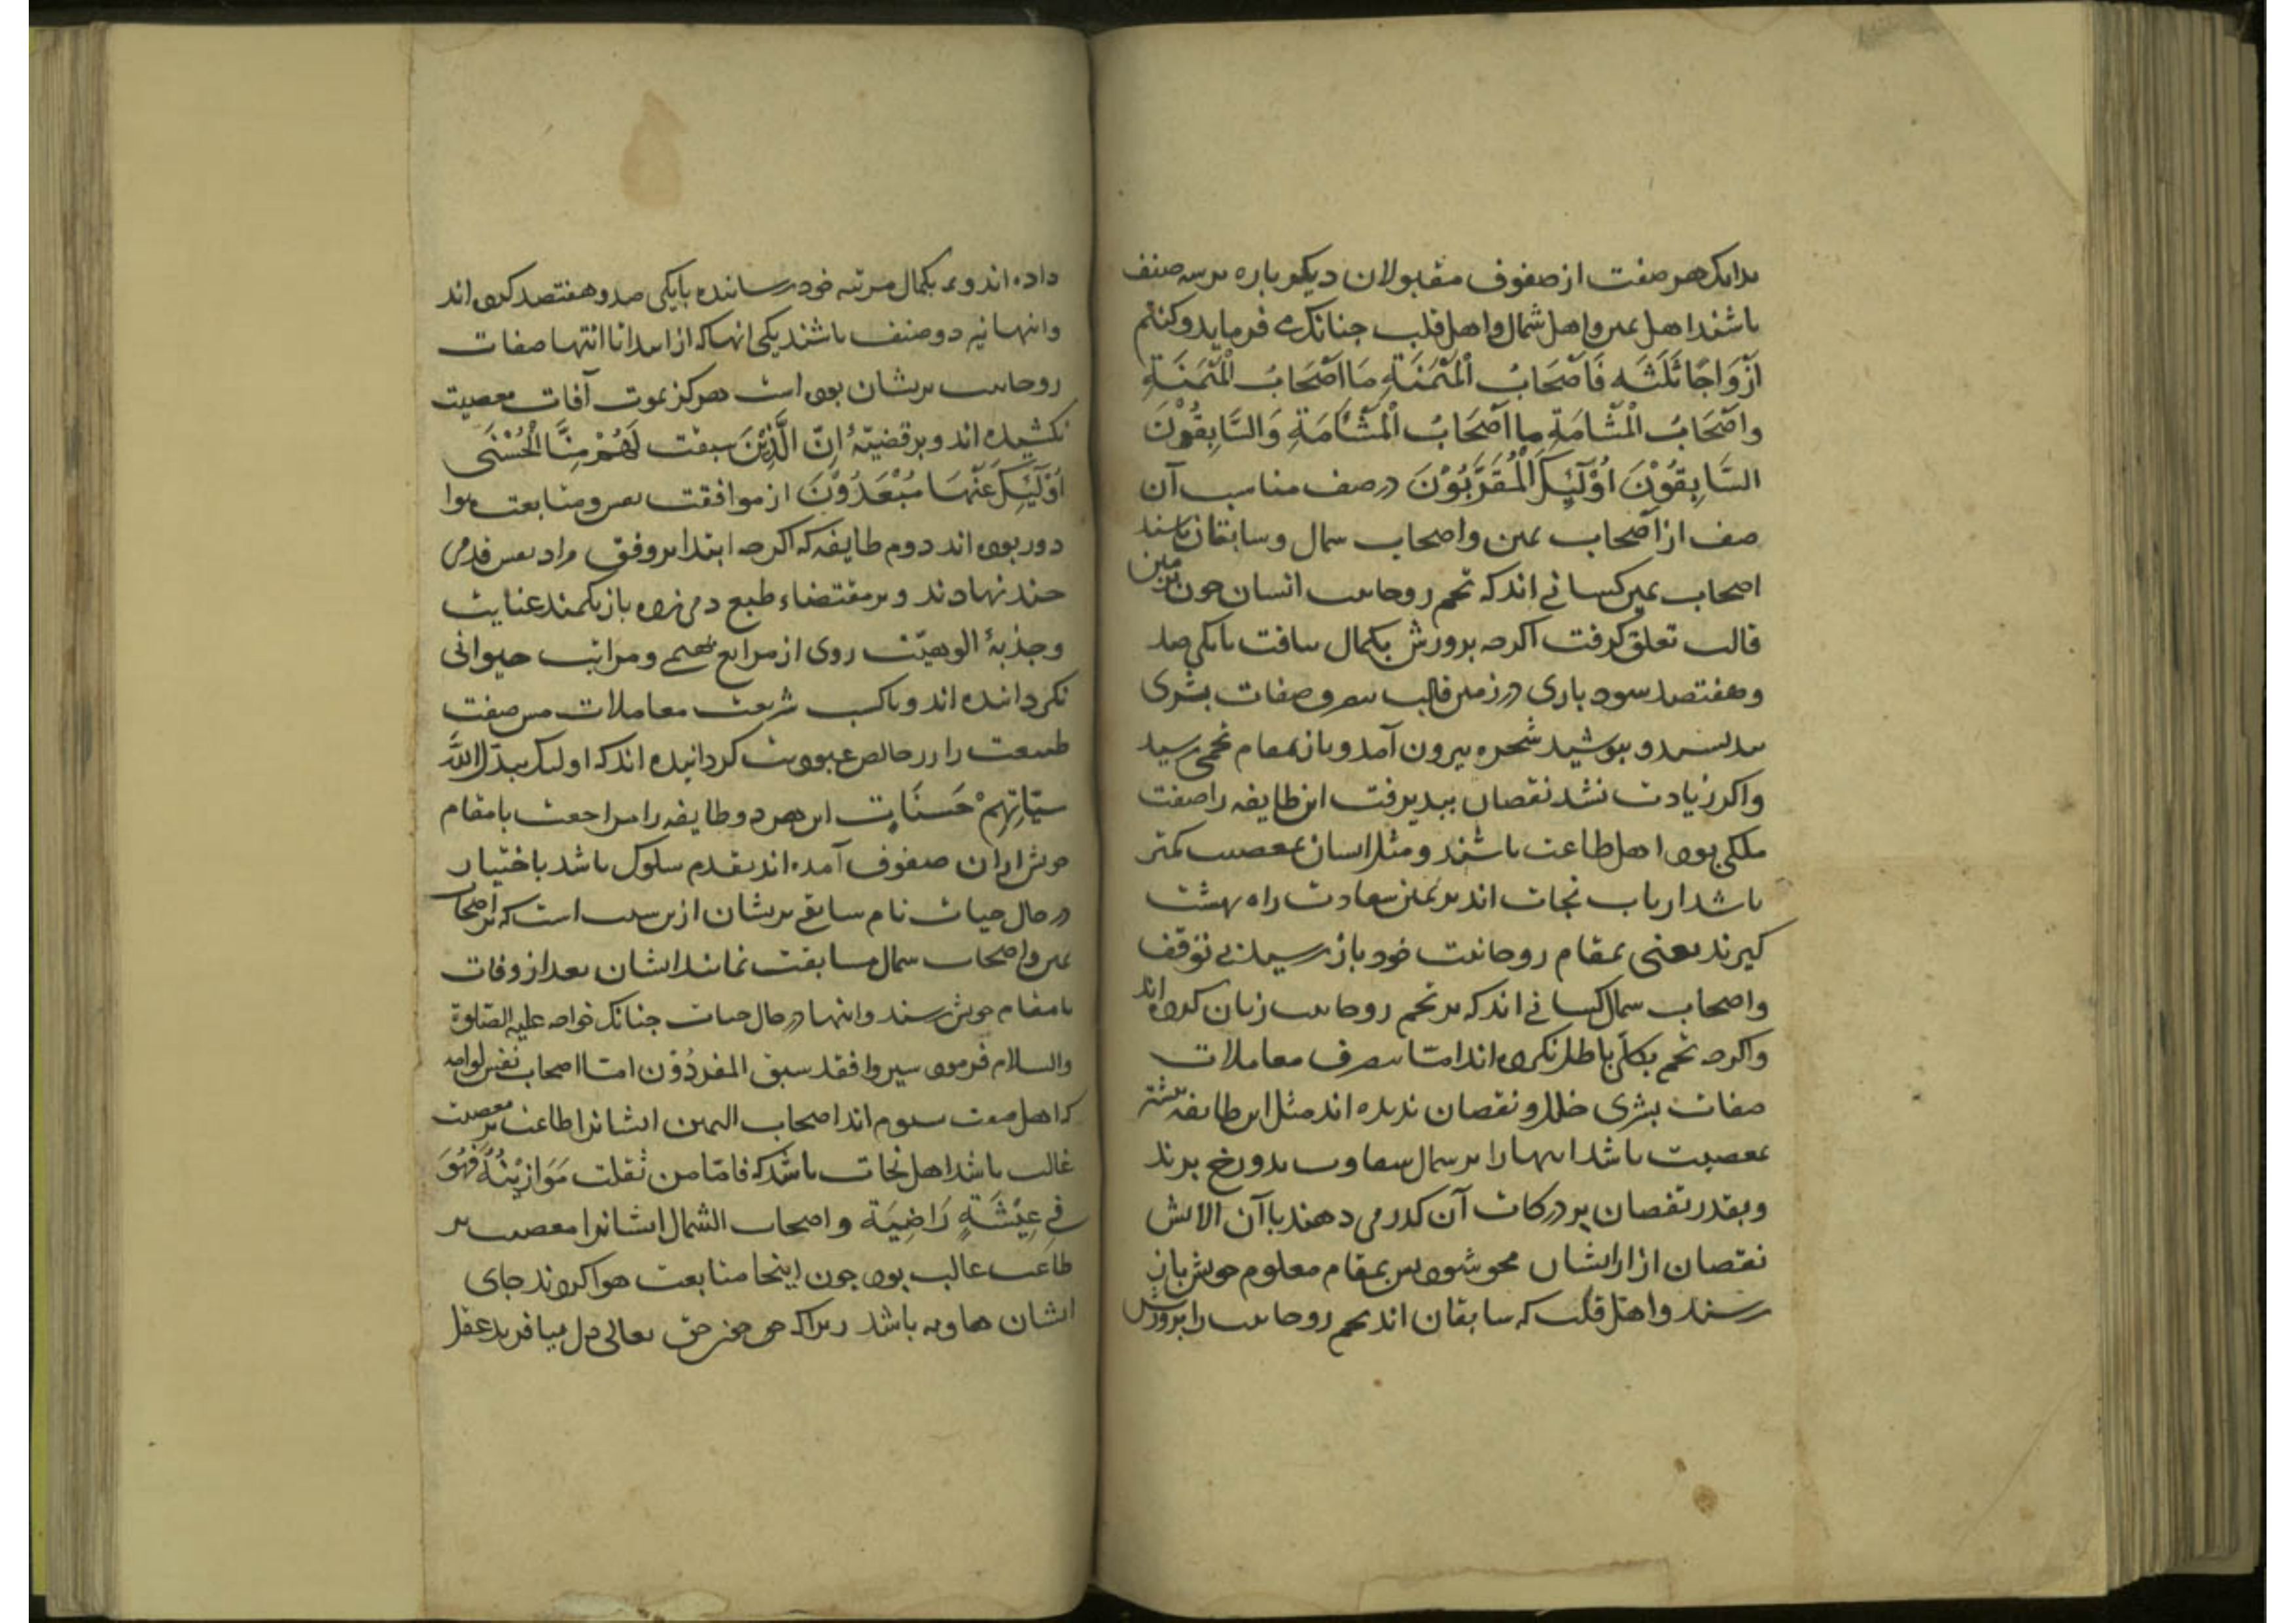 بدانک هر صفت از صفوف مقبولان دیکر باره بر سه صنف
باشند اهل یمین و اهل شمال و اهل قلب جنانک می فرماید وکنتم
اَزْوَاجًا ثَلَثَه فَاَصْحَابُ الْمَیْمَنَةِ مَا اَصْحَابُ الْمَیْمَنَةِ
واَصْحَابُ الْمَشْامَةِ ما اَصْحَابُ الْمَشْاَمَةِ وَالسَّابِقُوْنَ
السَّابِقُوْنَ اُوْلَئِکَ الْمُقَرَّبُوْنَ در صف مناسب آن
صف از اصحاب یمین واصحاب شمال وسابقان باشند
اصحاب یمین کسانی اند که تخم روحانیت انسان جون بزمین
قالب تعلق کرفت اکرجه برورش بکمال نیافت تا یکی صد
وهفتصد شود باری در زمین قالب بتصرف صفات بشری
بنبوسید و بپوشید شجره بیرون آمد و باز بمقام تخمی رسید
واکر زیادت نشد نقصان نپذیرفت این طایفه را صفت
ملکی بوده اهل طاعت باشند و مثل ایشان بمعصیت کمتر
باشد ارباب نجات اند بر یمین سعادت راه بهشت
کیرند یعنی بمقام روحانیت خود باز رسیدند بی توقف
واصحاب شمال کسانی اند که بر تخم روحانیت زیان کرده اند
واکرجه تخم بکلی باطل نکرده اند امّا بتصرف معاملات
صفات بشری خلل و نقصان پذیرفته اند مثل این طایفه بیشتر
بمعصیت باشد اینها را بر شمال شقاوت بدوزخ برند
وبقدر نقصان بر درکات آن کذر می دهند با آن الایش
نقصان از ایشان محو شود پس بمقام معلوم خویش باز
رسند و اهل قلب که سابقان اند تخم روحانیت را برورش
داده اند و بکمال مرتبه خود رسانیده تا یکی صد و هفتصد کرده اند
واینها نیز دو صنف باشند یکی انها که از ابتدا تا انتها صفات
روحانیت بریشان بوده است هرکز بموت آفات معصیت
نکشیده اند و بر قضیّهٔ اِنّ الَّذِیْنَ سبقت لَهُمْ مِنَّا الْحُسْنَی
اُوْلَئِکَ عَنْهَا مُبْعَدُوْنَ از موافقت نفس و متابعت هوا
دور بوده اند دوم طایفه که اکرجه ابتدا بر وفق مراد نفس قدمی
جند نهادند و بر مقتضاء طبع دمی زده باز بکمند عنایت
وجذبهٔ الوهیّت روی از مراتع بهیمی و مراتب حیوانی
بکردانیده اند و با کسب شریعت معاملات مس صفت
طبیعت را زر خالص عبودیت کردانیده اند که اولیک یبدّل اللّه
سیّاتِهِمْ حَسَنَاتٍ این هر دو طایفه را مراجعت با مقام
خویش از ان صفوف آمده اند بقدم سلوک باشد باختیار
در حال حیات نام سابقی بریشان ازین سبب است که بر اصحاب
یمین و اصحاب شمال مسابقت نمایند ایشان بعد از وفات
با مقام خویش رسند و اینها در حال حیات جنانک خواجه علیه الصّلوة
والسلام فرموده سیروا فقد سبق المفردُوْن امّا اصحاب نفس لوامه
که اهل صف سیوم اند اصحاب الیمین ایشانرا طاعت بر معصیت
غالب باشد اهل نجات باشند که فامّا من ثقلت مَوَازِیْنُهُ فَهُوَ
فِی عِیْشَةٍ رَاضِیَة و اصحاب الشمال ایشانرا معصیت بر
طاعت غالب بوده جون اینجا متابعت هوا کردند جای
ایشان هاویه باشد زیراکه جون حق تعالی دل بیافرید عقل